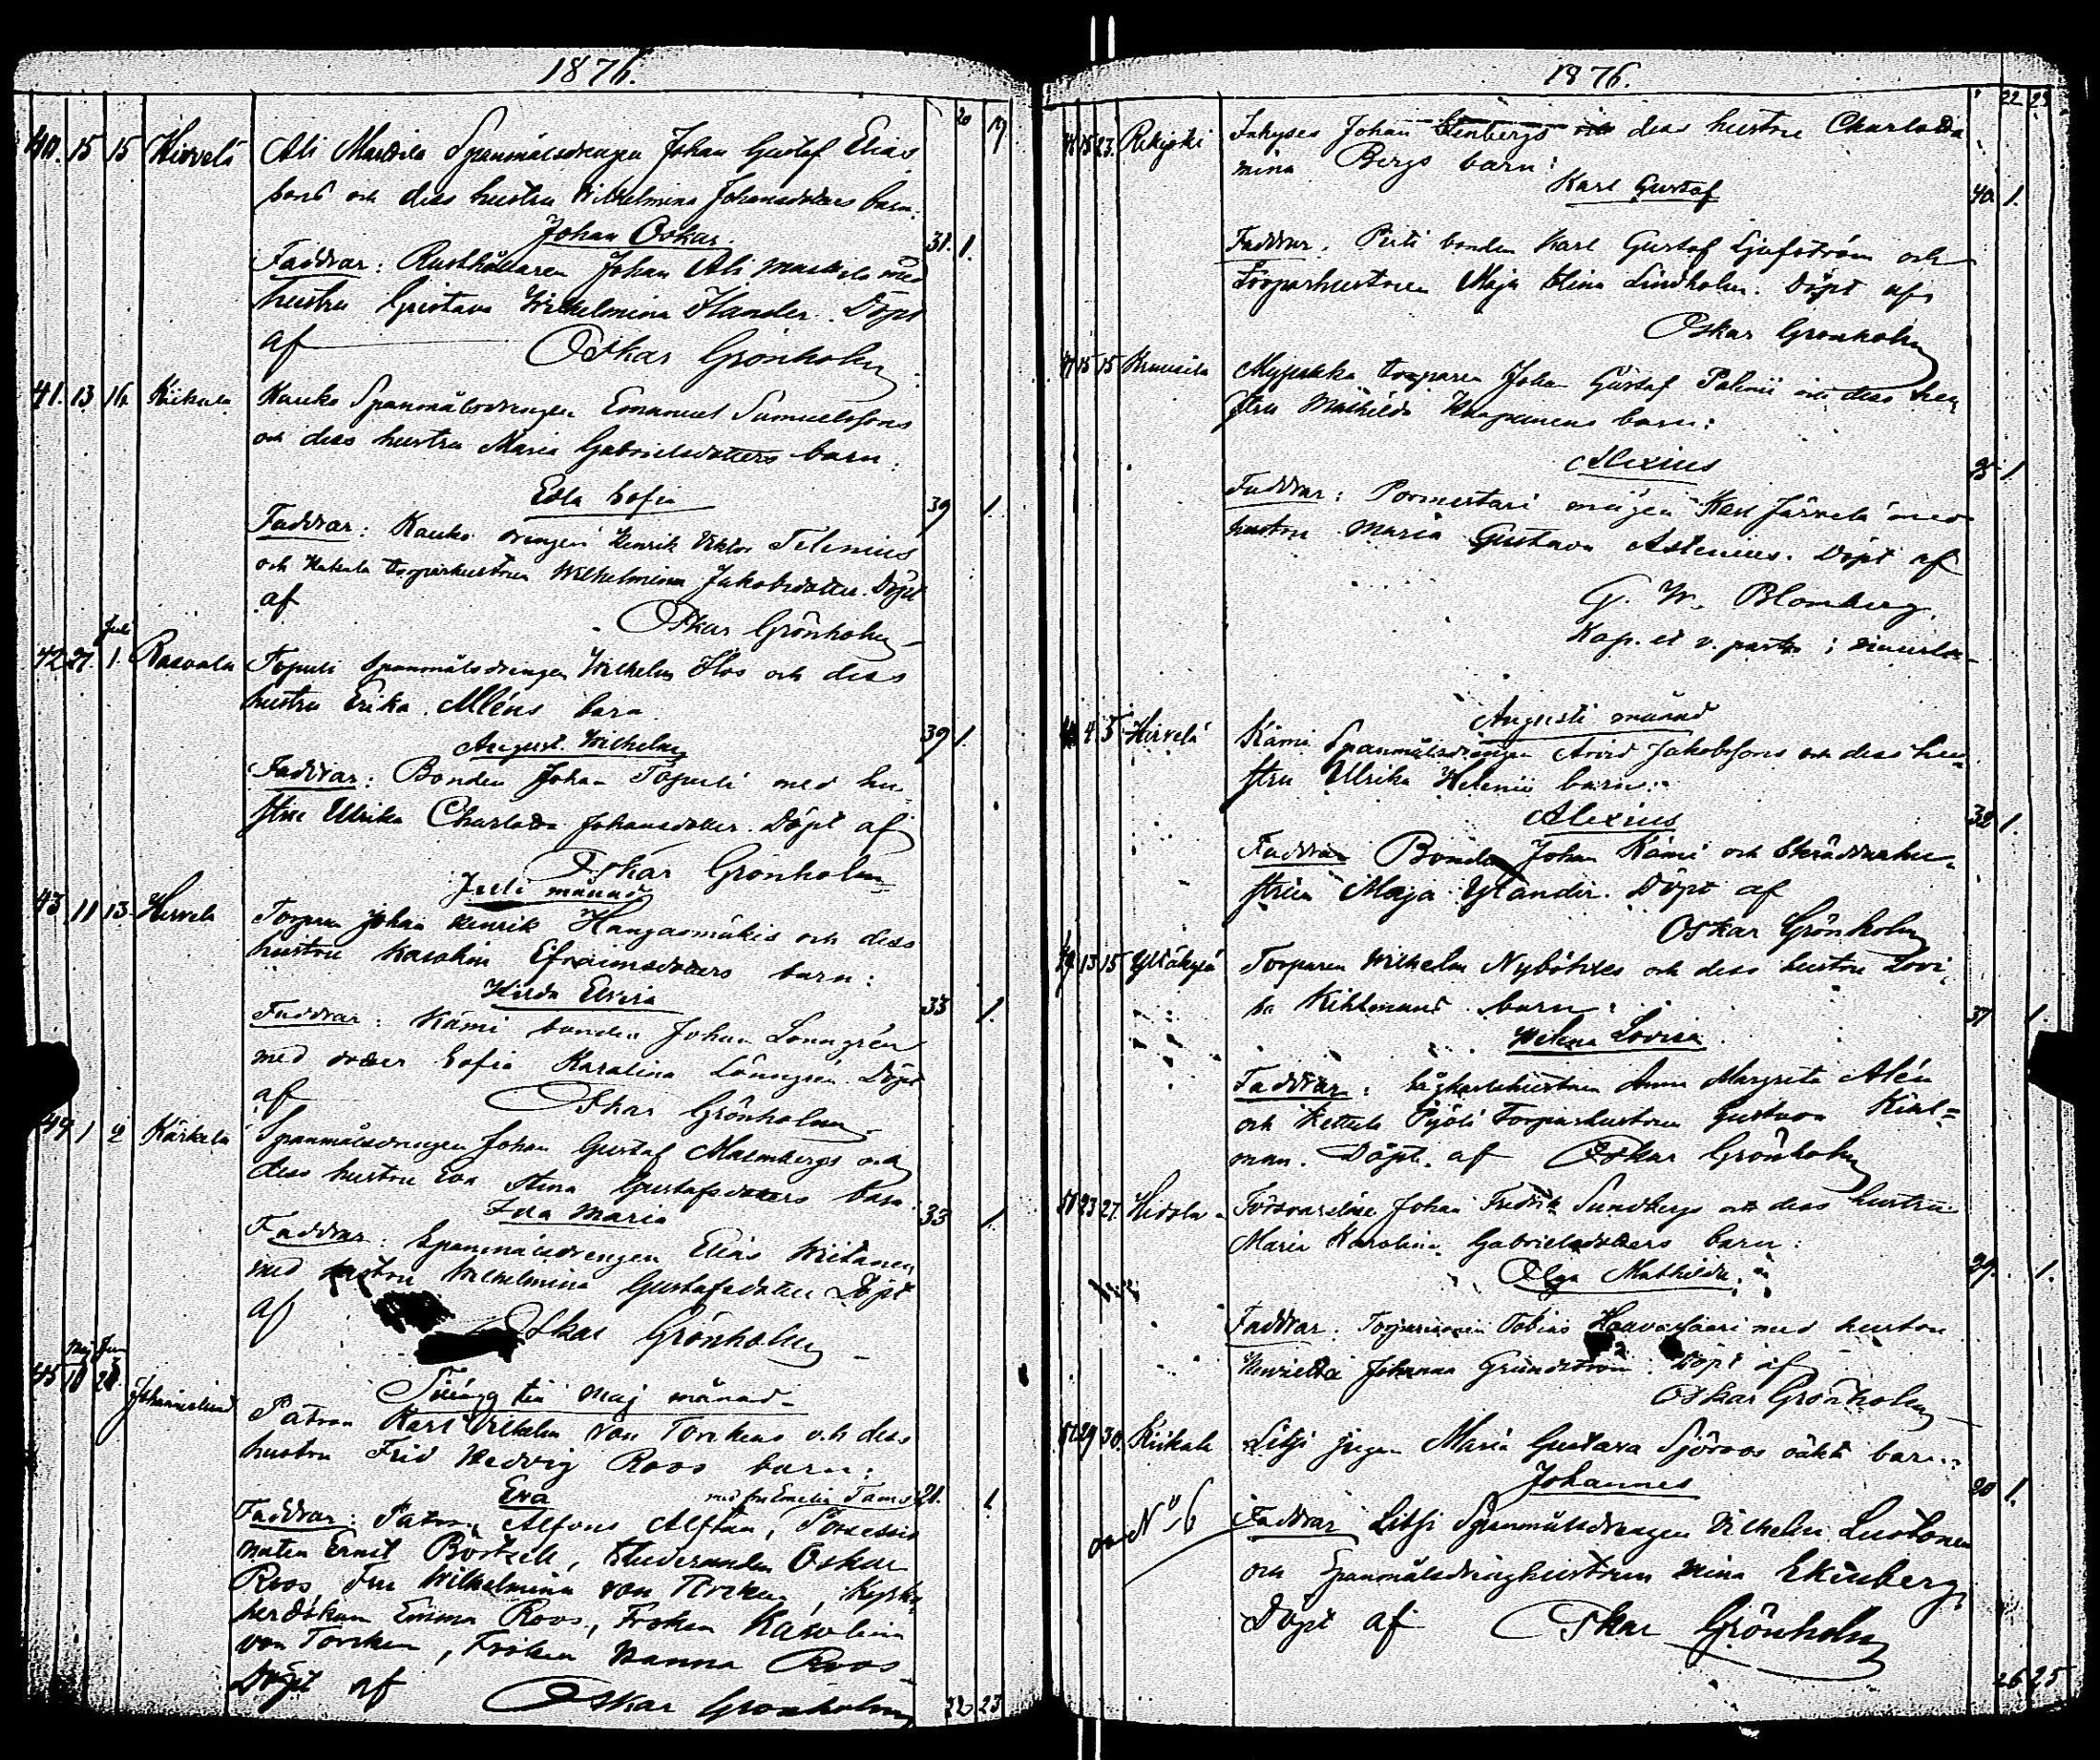 1876.
20 19
40. 15 15 Hirvelä Ali Markila Spanmålsdrengen Johan Gustaf Elias
sons och dess hustru Wilhelmina Johansdotters barn:
Johan Oskar. 31. 1.
Faddrar: Rusthållaren Johan Ali Markila med
hustru Gustava Wilhelmina Ölander. Döpt
af Oskar Grönholm
41. 13 16 Kiikala Kauko Spanmålsdrengen Emanuel Samuelssons
och dess hustru Maria Gabrielsdotters barn:
Edla Sofia 39 1.
Faddrar: Kauko drengen Henrik Viktor Telenius
och Hakala torparhustrun Wilhelmina Jakobsdotter. Döpt
af Oskar Grönholm
Juli
42 27. 1. Rasvala Topuli Spanmålsdrengen Wilhelm Ilos och dess
hustru Erika Aléns barn
August Wilhelm 39 1.
Faddrar: Bonden Johan Topuli med hu-
stru Ulrika Charlotta Johansdotter. Döpt af
Oskar Grönholm
Juli månad
43 11 13 Hirvelä Torparn Johan Henrik Hangasmäkis och dess
hustru Karolina Efraimsdotters barn:
Hilda Elviira 33 1.
Faddrar: Kämi bonden Johan Lönngrén
med dotter Sofia Karolina Lönngrén. Döpt
af Oskar Grönholm
44 1 2 Kärkelä Spanmålsdrengen Johan Gustaf Malmbergs och
dess hustru Eva Stina Gustafsdotters barn
Ida Maria 33 1.
Faddrar: Spanmålsdrengen Elias Wiitanen
med hustru Wilhelmina Gustafsdotter Döpt
af Oskar Grönholm
Maj Jun
Tillägg till Maj månad
45 18 Johannislund Patron Karl Vilhelm von Torckens och dess
hustru Frid Hedvig Roos barn:
Eva 21. 1.
med fru Emelie
Faddrar: Patron Alfons Alftan, Possessio
naten Ernst Böstell, Studeranden Oskar
Roos, fru Wilhelmina von Torcken, Kyrko-
herdskan Emma Roos, Fröken Karolina
von Torcken, Fröken Hanna Roos
Döpt af Oskar Grönholm
22 23
1876.
22 23
46 18 23. Rekijoki Inhyses Johan Stenbergs och dess hustru Charlotta
mina Bergs barn:
Karl Gustaf 40 1.
Faddrar: Piiti bonden Karl Gustaf Ljufström och
Torparhustrun Maja Stina Lindholm. Döpt af
Oskar Grönholm
47 15 15 Kruusila torparen Johan Gustaf Palmii och dess hu-
stru Mathilda barn:
Alexius 25 1
Faddrar: Pormestari mågen Karl Järvelä med
hustru Maria Gustava Astenius. Döpt af
G. W. Blomberg.
Kap. et v. pastor i
Augusti månad
48 4 5 Hirvelä Kämi Spanmålsdrengen Arvid Jakobssons och dess hu-
stru Ulrika Helenii barn:
Alexius 32 1.
Faddrar Bonden Johan Kämi och Skräddarhu-
strun Maja Ylander. Döpt af
Oskar Grönholm
49 13 15 Yltäkylä Torparen Wilhelm Nyböhles och dess hustru Lovi-
sa Kihlmans barn:
Helena Lovisa 37 1.
Faddrar: Sågkarlshustrun Anna Margreta Alén
och Kettula Pyöli Torparhustrun Gustava Kihl=
man. Döpt af Oskar Grönholm
50 23 27. Hidola Försvarslöse Johan Fredrik Sundbergs och dess hustru
Maria Karolina Gabrielsdotters barn:
Olga Mathilda. 29. 1.
Faddrar: Tobias med hustru
Henrietta Johanna Grundström. Döpt af
Oskar Grönholm
51 29 30. Kiikala Litsi pigan Maria Gustava Sjöroos oäkta barn:
Johannes 20 1.
Nº 6 Faddrar Litsi Spanmålsdrengen Vilhelm Lustonen
och Spanmålsdrenghustrun Mina Ekenberg.
Döpt af Oskar Grönholm
26 25